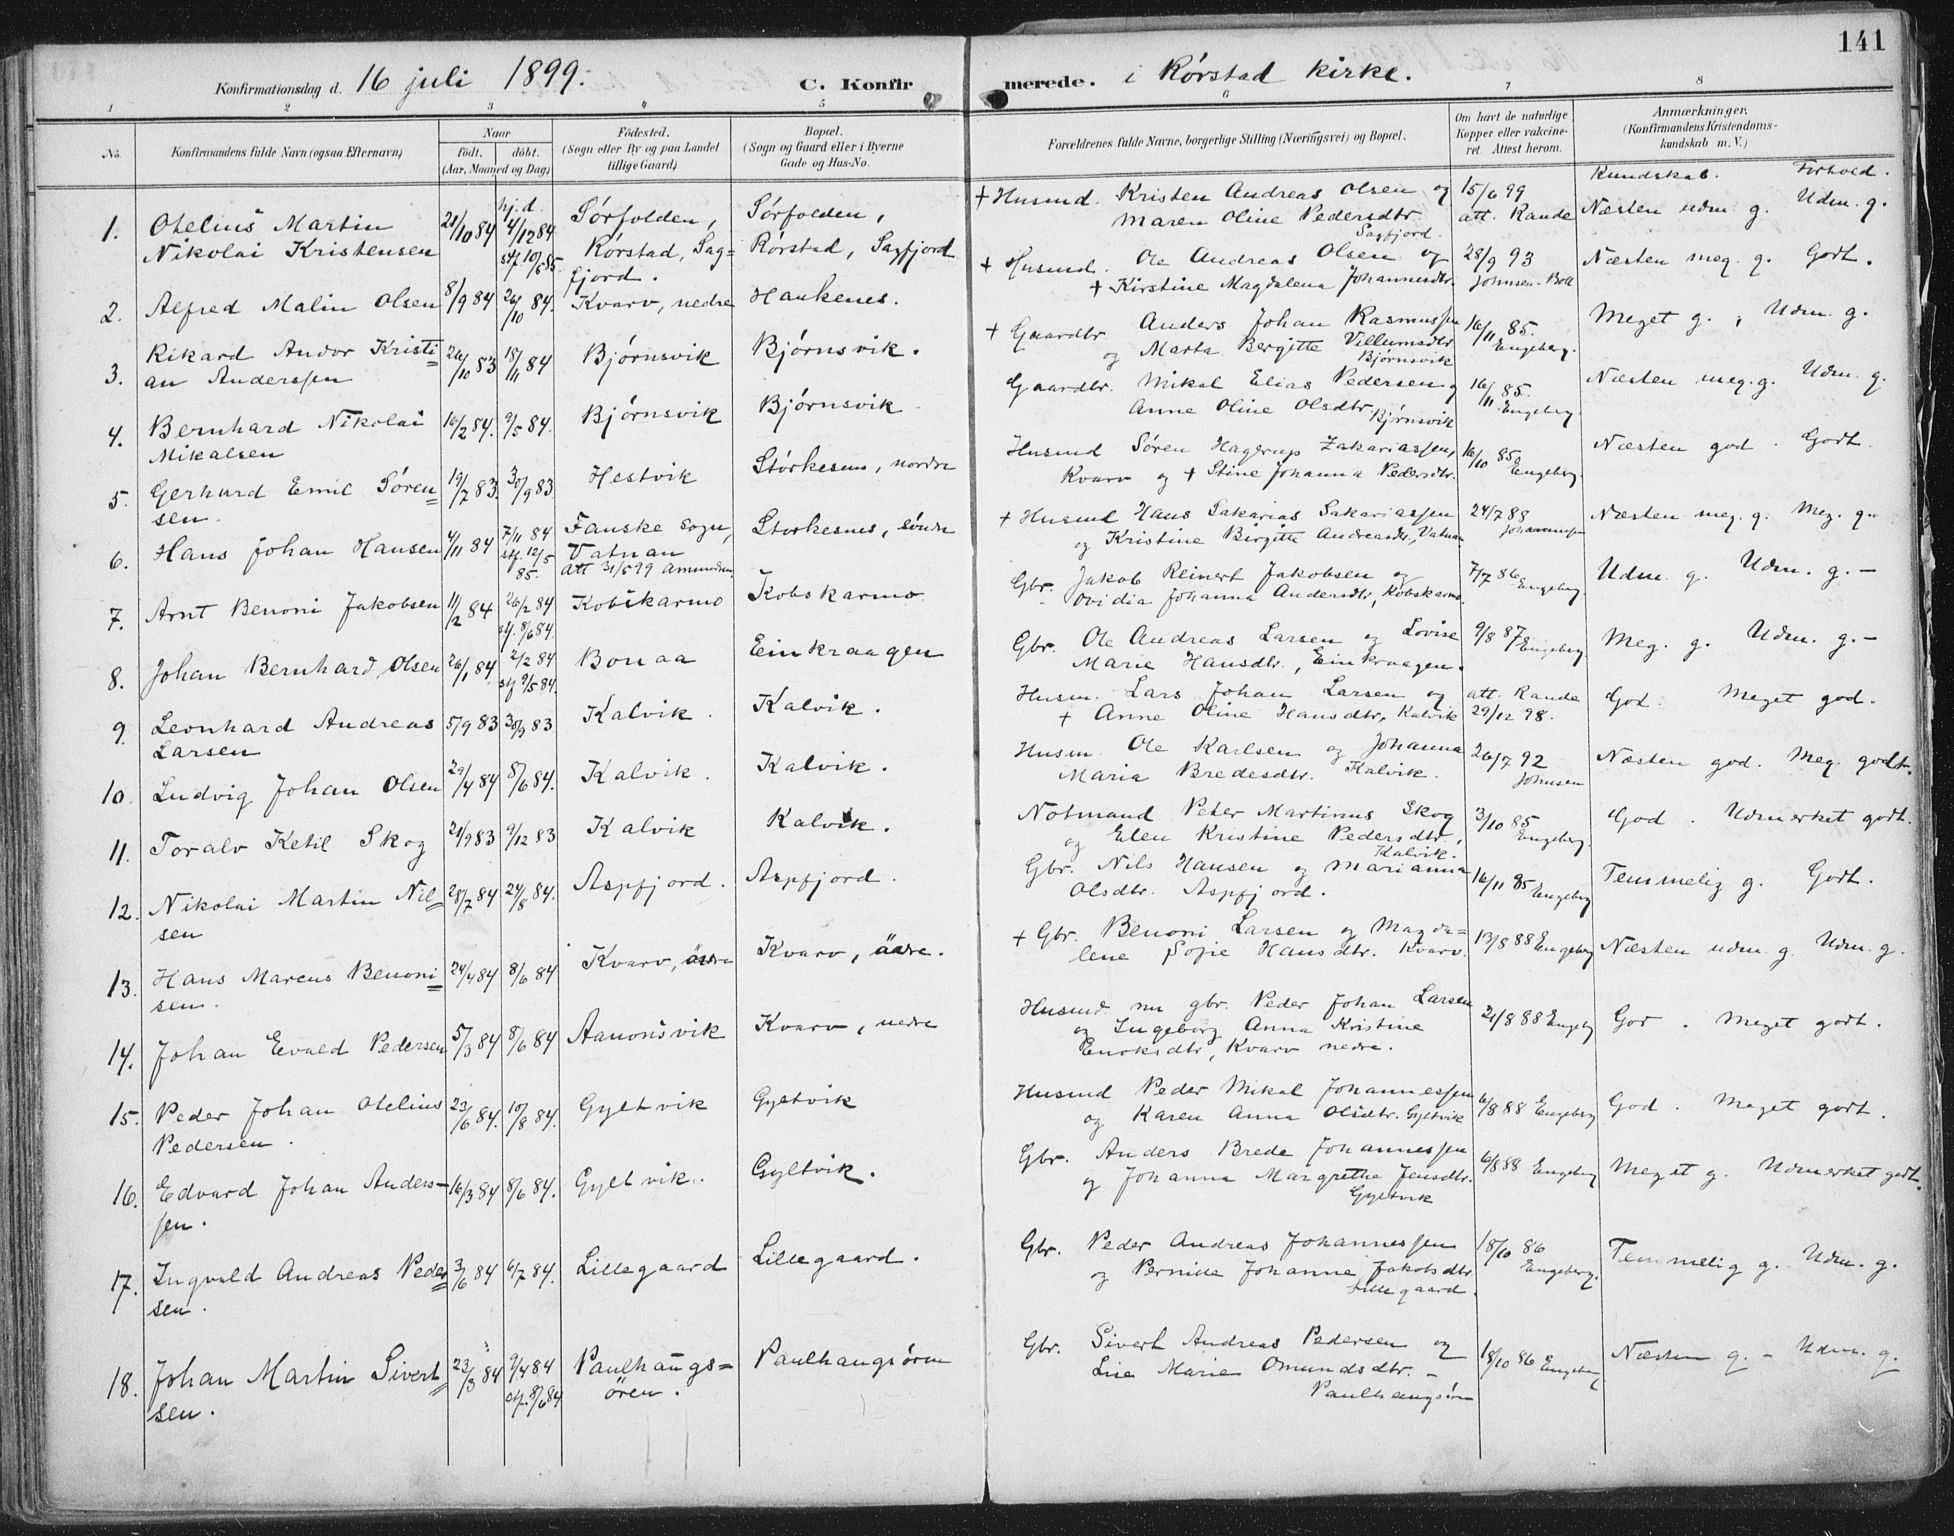 141
Konfirmationsdag d. 16 juli 1899. C. Konfirmerede. i Rørstad kirke.
1 2 3 4 5 6 7 8
No. Konfirmandens fulde Navn (ogsaa Efternavn)
Naar født. døbt. (Aar, Maaned og Dag)
Fødested. (Sogn eller By og paa Landet tillige Gaard)
Bopæl. (Sogn og Gaard eller i Byerne Gade og Hus-No.
Forældrenes fulde Navne, borgerlige Stilling (Næringsvei) og Bopæl.
Om havt de naturlige Kopper eller vakcineret. Attest herom.
Anmærkninger. (Konfirmandens Kristendomskundskab m. V.)
Kundskab. Forhold.
1. Otelius Martin 21/10 84 hj.d. 4/12 84 Sørfolden, Sørfolden, + Husmd. Kristen Andreas Olsen og 15/6 99 Næsten udm. g. Udm. g.
Nikolai Kristensen stf 10/5 85. Rørstad, Sagfjord. Rørstad, Sagfjord Maren Oline Pedersdtr. Sagfjord. att. Rande
2. Alfred Malin Olsen 8/9 84 26/10 84. Kvarv, nedre Haukenes. + Husmd. Ole Andreas Olsen og 28/9 93 Næsten meg. g. Godt.
+ Kirstine Magdalena Johannesdtr. Johnsen-Boll
3. Rikard Andor Kristi= 26/10 83 18/11 84 Bjørnsvik Bjørnsvik. + Gaardbr. Anders Johan Rasmussen 16/11 85. Meget g., Udm. g.
an Anderssen og Marta Bergitte Villumsdtr Bjørnsvik Engeberg.
4. Bernhard Nikolai 10/2 84. 9/5 84. Bjørnsvik Bjørnsvik Gaardbr. Mikal Elias Pedersen og 16/11 85. Næsten meg. g. Udm. g.
Mikalsen Anne Oline Olsdtr. Bjørnsvik Engeberg.
5. Gerhard Emil Søren= 19/7 83. 30/9 83 Hestvik Storkesnes, nordre Husmd Søren Hagerup Zakariassen, 16/10 85 Næsten god. Godt.
sen. Kvarv og + Stine Johanna Pedersdtr. Engeberg.
6. Hans Johan Hansen 4/11 84 7/11 84 Fauske sogn, Storkesnes, søndre + Husmd Hans Sakarias Sakariassen 24/7 88 Næsten meg. g. Meg. g.
stf. 12/5 85. Vatnan og Kristine Birgitte Andreasdtr., Vatnan
att 31/5 99
7. Arnt Benoni Jakobsen 11/2 84 26/2 84 Kobskarmo Kobskarmo Gbr. Jakob Reinert Jakobsen og 7/7 86 Udm. g. Udm. g. -
stf. 8/6 84. Ovidia Johanna Andersdtr, Kobskarmo. Engeberg.
8. Johan Bernhard Olsen 26/1 84 2/2 84 Bonaa Einkraagen Gbr. Ole Andreas Larsen og Lovise 9/8 87 Meg. g. Udm. g. -
stf 9/5 84. Marie Hansdtr., Einkraagen. Engeberg.
9. Leonhard Andreas 5/9 83 30/9 83 Kalvik. Kalvik. Husm. Lars Johan Larsen og att. Rande God. Meget god.
Larsen + Anne Oline Hansdtr, Kalvik 29/12 98.
10. Ludvig Johan Olsen 29/4 84 8/6 84. Kalvik. Kalvik. Husm. Ole Karlsen og Johanna 26/7 92 Næsten god. Meg. godt.
Maria Bredesdtr. Kalvik. Johnsen
11. Toralv Ketil Skog 21/9 83 9/12 83 Kalvik Kalvik. Notmand Peter Martinus Skog 3/10 85 God. Udmerket godt.
og Elen Kristine Pedersdtr., Kalvik. Engeberg.
12. Nikolai Martin Nil= 28/7 84 24/8 84. Aspfjord. Aspfjord. Gbr. Nils Hansen og Marianna 16/11 85 Temmelig g. Godt.
sen Olsdtr. Aspfjord. Engeberg
13. Hans Marcus Benoni= 24/4 84 8/6 84 Kvarv, Kvarv, + Gbr. Benoni Larsen og Magda= 13/8 88 Engeberg Næsten udm. g. Udm. g.
sen. lene Sofie Hansdtr. Kvarv.
14. Johan Evald Pedersen 5/3 84 8/6 84 Aanonsvik Kvarv, nedre Husmd nu gbr. Peder Johan Larsen 21/8 88 Engeberg God. Meget godt.
og Ingeborg Anna Kristine
Enoksdtr, Kvarv nedre.
15. Peder Johan Otelius 23/6 84. 10/8 84. Gyltvik Gyltvik Husmd Peder Mikal Johannessen 6/8 88 Engeberg God. Meget godt.
Pedersen. og Karen Anna Olsdtr. Gyltvik
16. Edvard Johan Anders- 16/3 84 8/6 84. Gyltvik. Gyltvik. Gbr. Anders Brede Johannessen 6/8 88 Engeberg Meget g. Udmerket godt.
sen. og Johanna Margrethe Jensdtr. Gyltvik
17. Ingvald Andreas Peder= 3/6 84 6/7 84. Lillegaard Lillegaard. Gbr. Peder Andreas Johannessen 18/10 86 Temmelig g. Udm. g.
sen. og Pernille Johanne Jakobsdtr. Lillegaard. Engeberg.
18. Johan Martin Sivert= 23/3 84 9/4 84 Paulhaugs= Paulhaugsøren Gbr. Sivert Andreas Pedersen og 18/10 86 Engeberg Næsten g. - Udm. g.
sen. stf. 8/6 84 ören. Lise Marie Omundsdtr. -
Paulhaugsøren